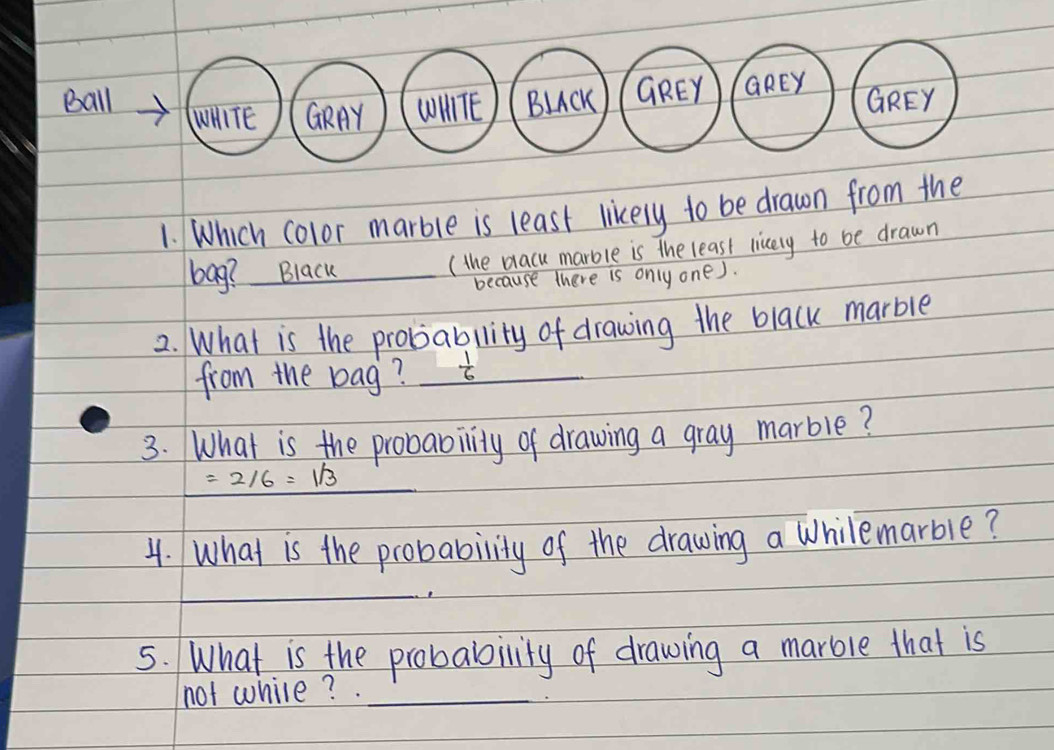 Ball → WHITE GRAY WHITE BLACK GREY GREY GREY
1. Which color marble is least likely to be drawn from the
bag? Black (the black marble is the least likely to be drawn
because there is only one).
2. What is the probability of drawing the black marble
from the bag? 1/6
3. What is the probability of drawing a gray marble?
= 2/6 = 1/3
4. What is the probability of the drawing a While marble?
5. What is the probability of drawing a marble that is
not while?.